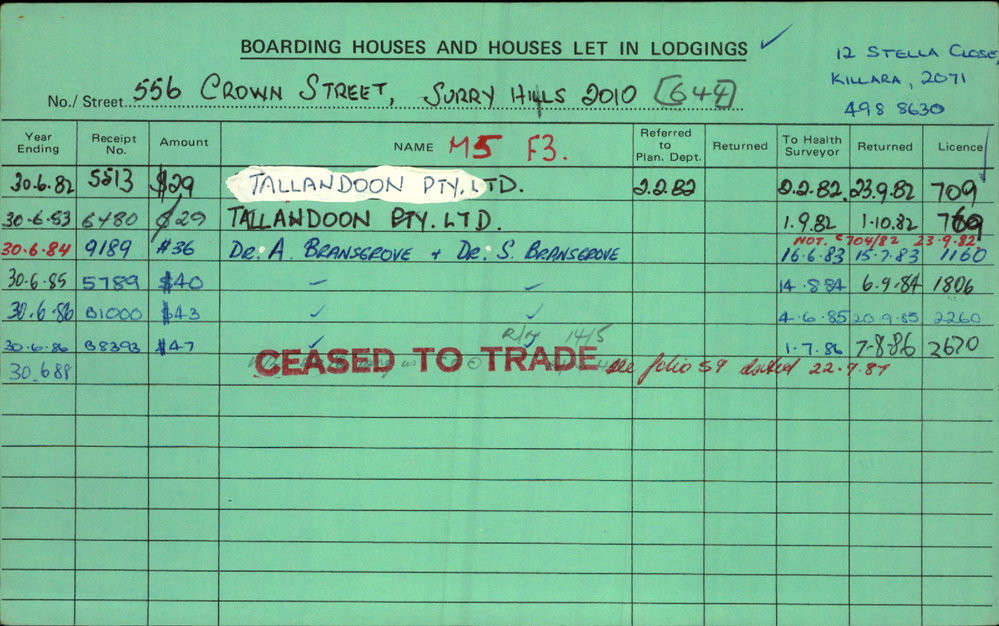 BOARDING HOUSES AND HOUSES LET IN LODGINGS ✓
12 STELLA CLOSE,
KILLARA, 2071
498 8630
No./ Street 556 CROWN STREET, SURRY HILLS 2010 [644]
Year Ending Receipt No. Amount NAME M5 F3. Referred to Plan. Dept. Returned To Health Surveyor Returned Licence
30.6.82 5513 $29 TALLANDOON PTY. LTD. 2.2.82 2.2.82 23.9.82 709
30.6.83 6480 $29 TALLANDOON PTY. LTD. 1.9.82 1.10.82 769
NOT. 704/82 23.9.82
30.6.84 9189 $36 DR. A. BRANSGROVE + DR. S. BRANSGROVE 16.6.83 15.7.83 1160
30.6.85 5789 $40 14.8.84 6.9.84 1806
30.6.86 B1000 $43 ✓ ✓ 4.6.85 20.9.85 2260
14/5
30.6.86 B8393 $47 ✓ 1.7.86 7.8.86 2670
30.688 CEASED TO TRADE see folio 59 dated 22.7.87